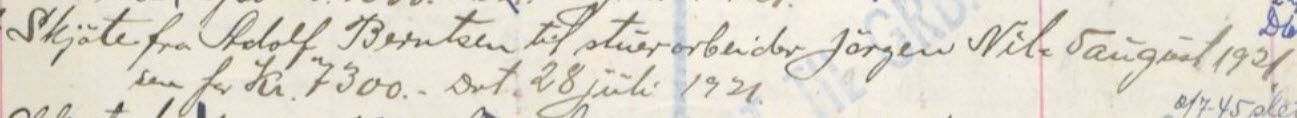 Skjöte fra Adolf Berntsen til stuerarbeider Jörgen Nil- 5 august 1921
sen for Kr. 7300.- Dat. 28 juli 1921.